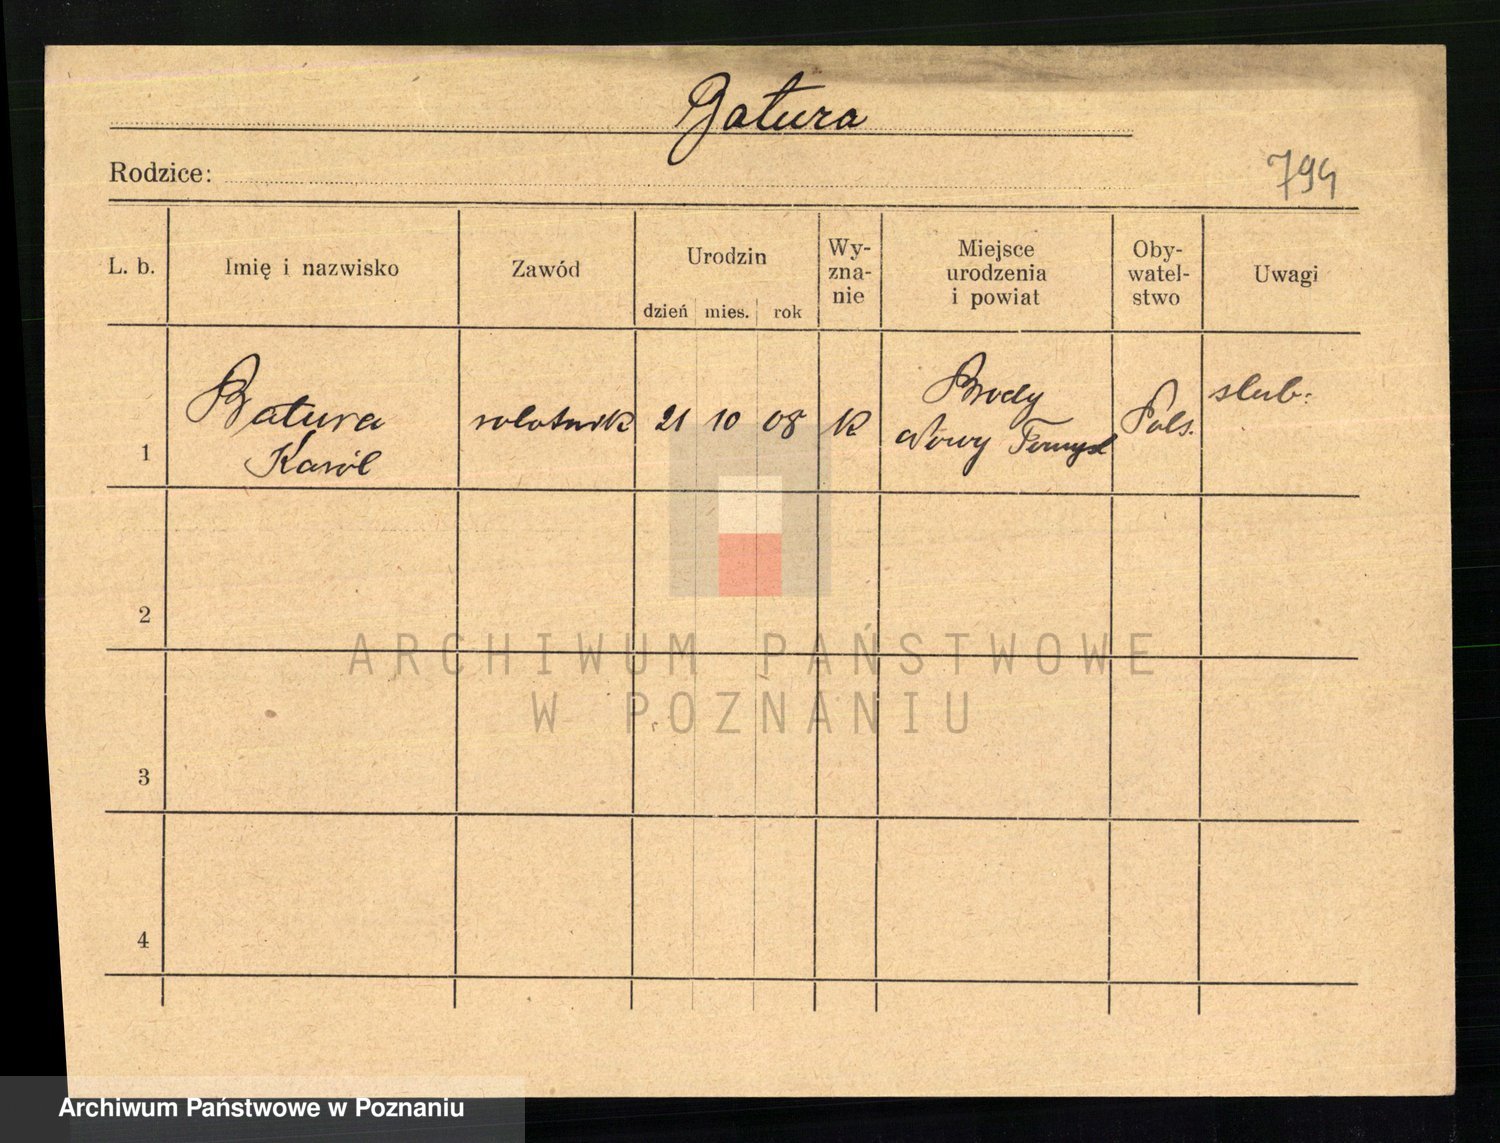 Batura
Rodzice:
794
L. b. Imię i nazwisko Zawód Urodzin Wy-zna-nie Miejsce urodzenia i powiat Oby-watel-stwo Uwagi
dzień mies. rok
1 Batura Karól robotnik 21 10 08 K Brody Nowy Tomysl Pols. slub:
2
3
4
ARCHIWUM PAŃSTWOWE
W POZNANIU
Archiwum Państwowe w Poznaniu